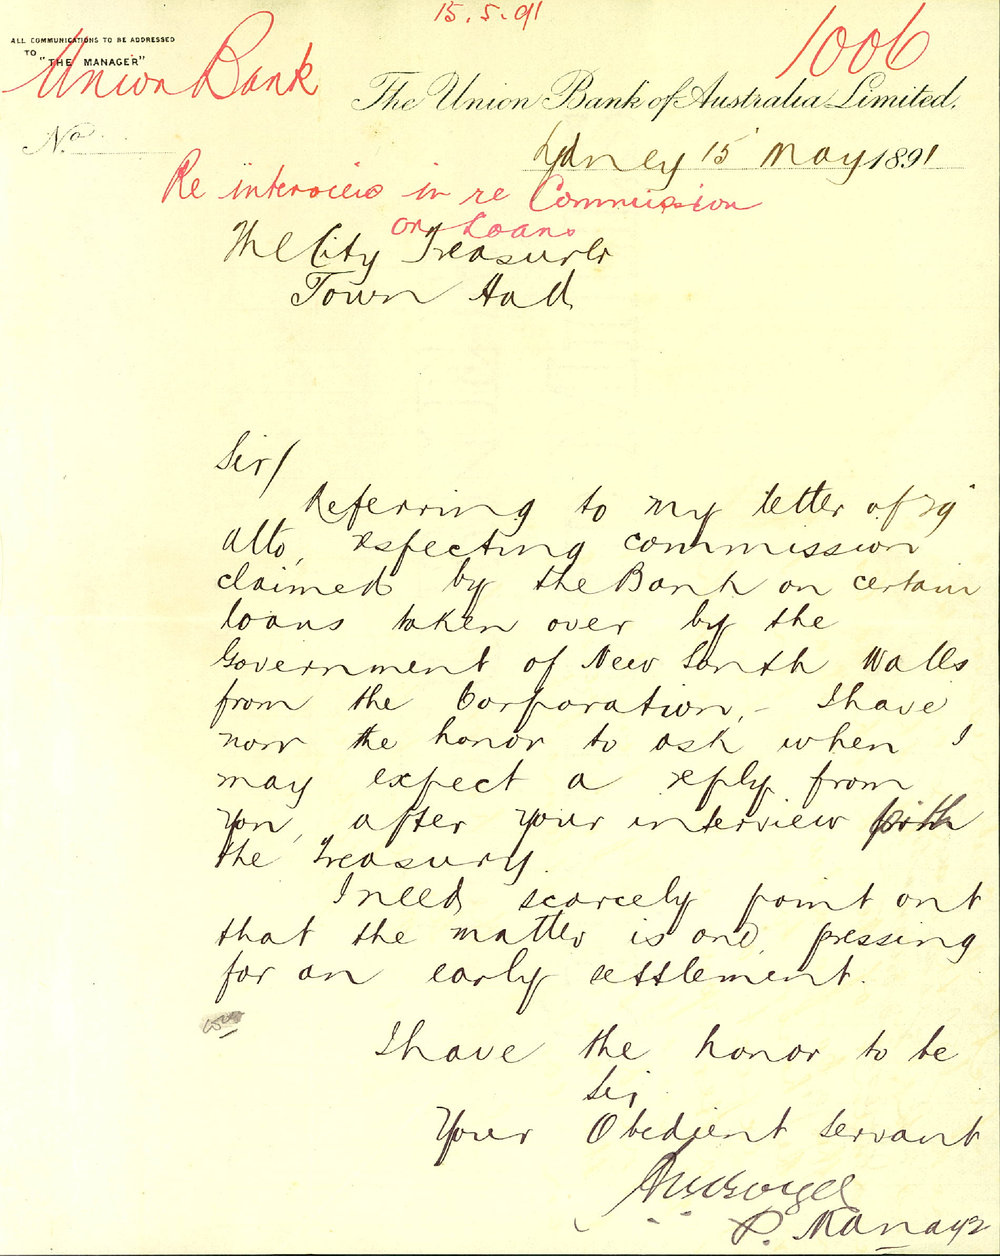 15.5.91
ALL COMMUNICATIONS TO BE ADDRESSED
TO "THE MANAGER"
Union Bank
1006
The Union Bank of Australia Limited.
No.
Sydney 15 May 1891
Re interview in re Commission
on Loans
The City Treasurer
Town Hall
Sir/
Referring to my letter of 29
ulto, respecting commission
claimed by the Bank on certain
loans taken over by the
Government of New South Wales
from the Corporation, - I have
now the honor to ask when I
may expect a reply from
you, after your interview with
the Treasury.
I need scarcely point out
that the matter is one pressing
for an early settlement.
I have the honor to be
Sir,
Your Obedient Servant
P. Manager